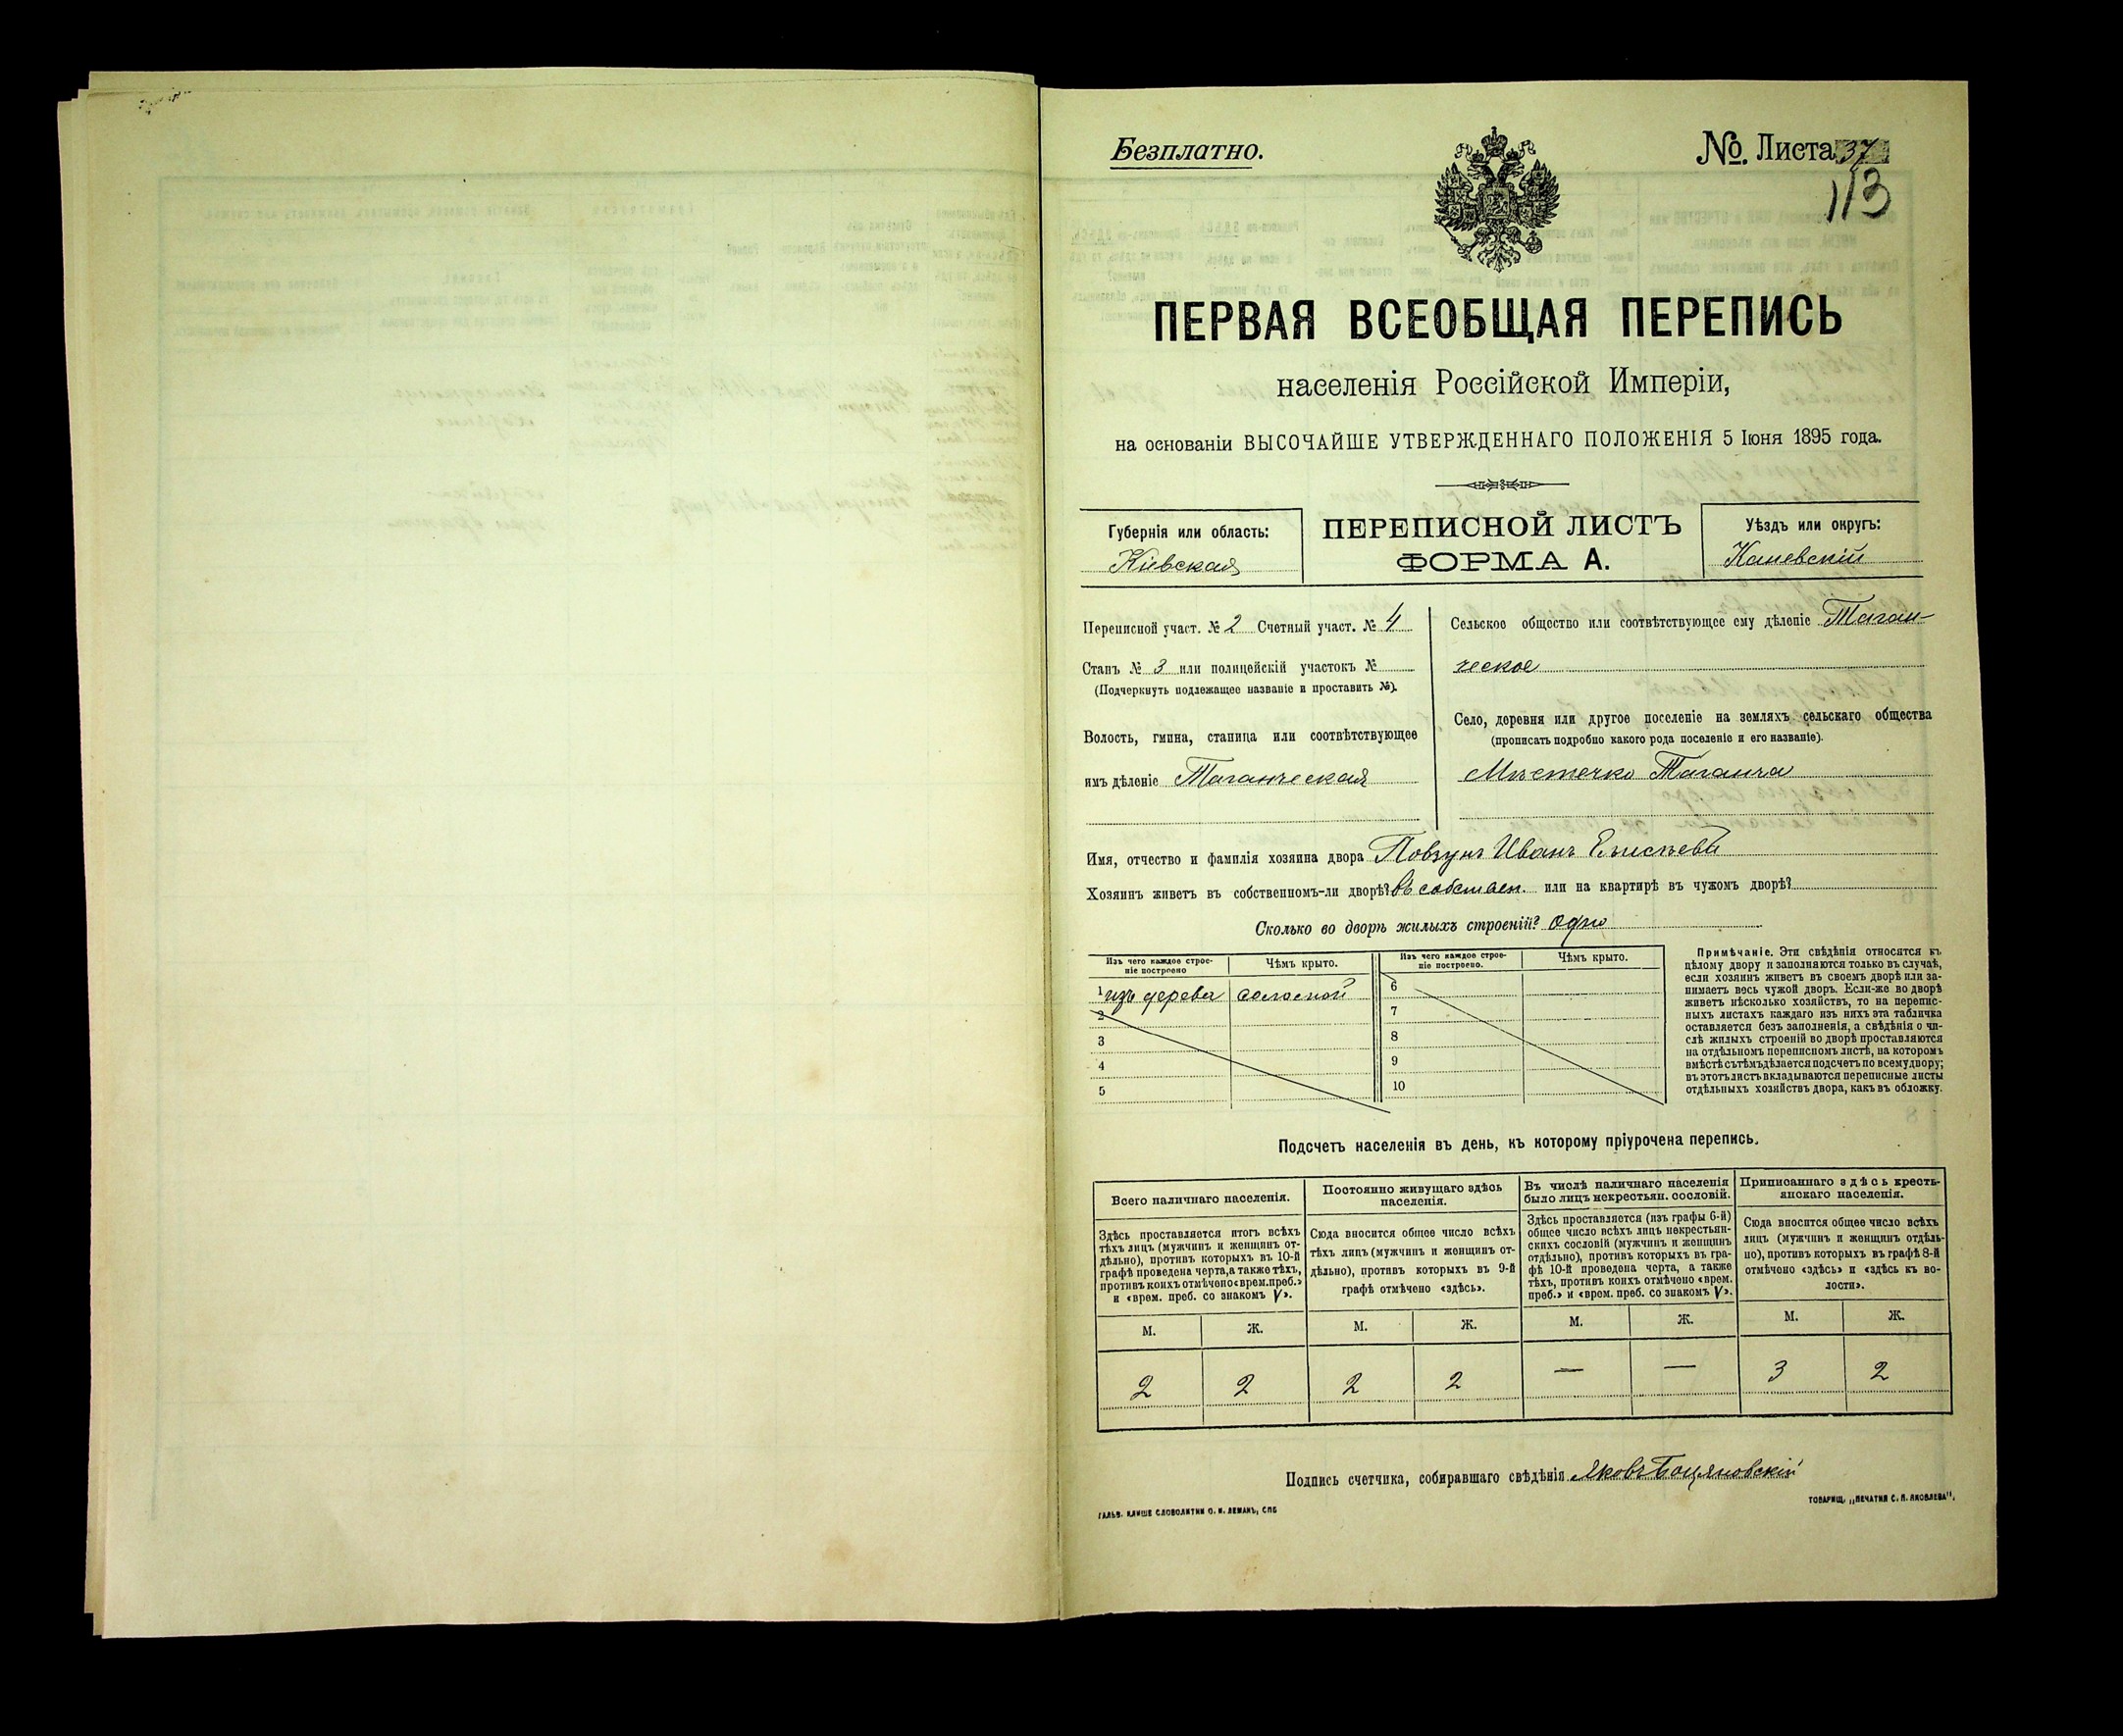 Безплатно.
№. Листа 37
113
ПЕРВАЯ ВСЕОБЩАЯ ПЕРЕПИСЬ
населенія Россійской Имперіи,
на основаніи ВЫСОЧАЙШЕ УТВЕРЖДЕННАГО ПОЛОЖЕНІЯ 5 Іюня 1895 года.
Губернія или область:
Кіевская
ПЕРЕПИСНОЙ ЛИСТЪ
ФОРМА А.
Уѣздъ или округъ:
Каневскій
Переписной участ. № 2 Счетный участ. № 4
Станъ № 3 или полицейскій участокъ №
(Подчеркнуть подлежащее названіе и проставить №).
Волость, гмина, станица или соотвѣтствующее
имъ дѣленіе Таганческая
Сельское общество или соотвѣтствующее ему дѣленіе Таган-
ческое
Село, деревня или другое поселеніе на земляхъ сельскаго общества
(прописать подробно какого рода поселеніе и его названіе).
Мѣстечко Таганча
Имя, отчество и фамилія хозяина двора Повзунъ Иванъ Елисѣевъ
Хозяинъ живетъ въ собственномъ-ли дворѣ? въ собствен. или на квартирѣ въ чужомъ дворѣ?
Сколько во дворѣ жилыхъ строеній? одно
Изъ чего каждое строе-
ніе построено
Чѣмъ крыто.
Изъ чего каждое строе-
ніе построено.
Чѣмъ крыто.
1 изъ дерева соломой
2
3
4
5
6
7
8
9
10
Примѣчаніе. Эти свѣдѣнія относятся къ
цѣлому двору и заполняются только въ случаѣ,
если хозяинъ живетъ въ своемъ дворѣ или за-
нимаетъ весь чужой дворъ. Если-же во дворѣ
живетъ нѣсколько хозяйствъ, то на перепис-
ныхъ листахъ каждаго изъ нихъ эта табличка
оставляется безъ заполненія, а свѣдѣнія о чи-
слѣ жилыхъ строеній во дворѣ проставляются
на отдѣльномъ переписномъ листѣ, на которомъ
вмѣстѣ съ тѣмъ дѣлается подсчетъ по всему двору;
въ этотъ листъ вкладываются переписные листы
отдѣльныхъ хозяйствъ двора, какъ въ обложку.
Подсчетъ населенія въ день, къ которому пріурочена перепись.
Всего наличнаго населенія.
Здѣсь проставляется итогъ всѣхъ
тѣхъ лицъ (мужчинъ и женщинъ от-
дѣльно), противъ которыхъ въ 10-й
графѣ проведена черта, а также тѣхъ,
противъ коихъ отмѣчено «врем. преб.»
и «врем. преб. со знакомъ V».
Постоянно живущаго здѣсь
населенія.
Сюда вносится общее число всѣхъ
тѣхъ лицъ (мужчинъ и женщинъ от-
дѣльно), противъ которыхъ въ 9-й
графѣ отмѣчено «здѣсь».
Въ числѣ наличнаго населенія
было лицъ некрестьян. сословій.
Здѣсь проставляется (изъ графы 6-й)
общее число всѣхъ лицъ некрестьян-
скихъ сословій (мужчинъ и женщинъ
отдѣльно), противъ которыхъ въ гра-
фѣ 10-й проведена черта, а также
тѣхъ, противъ коихъ отмѣчено «врем.
преб.» и «врем. преб. со знакомъ V».
Приписаннаго здѣсь кресть-
янскаго населенія.
Сюда вносится общее число всѣхъ
лицъ (мужчинъ и женщинъ отдѣль-
но), противъ которыхъ въ графѣ 8-й
отмѣчено «здѣсь» и «здѣсь къ во-
лости».
М. Ж. М. Ж. М. Ж. М. Ж.
2 2 2 2 — — 3 2
Подпись счетчика, собиравшаго свѣдѣнія Яковъ Боцяновскій
ГАЛЬВ. КЛИШЕ СЛОВОЛИТНИ О. И. ЛЕМАНЪ, СПБ
ТОВАРИЩ. „ПЕЧАТНЯ С. П. ЯКОВЛЕВА".